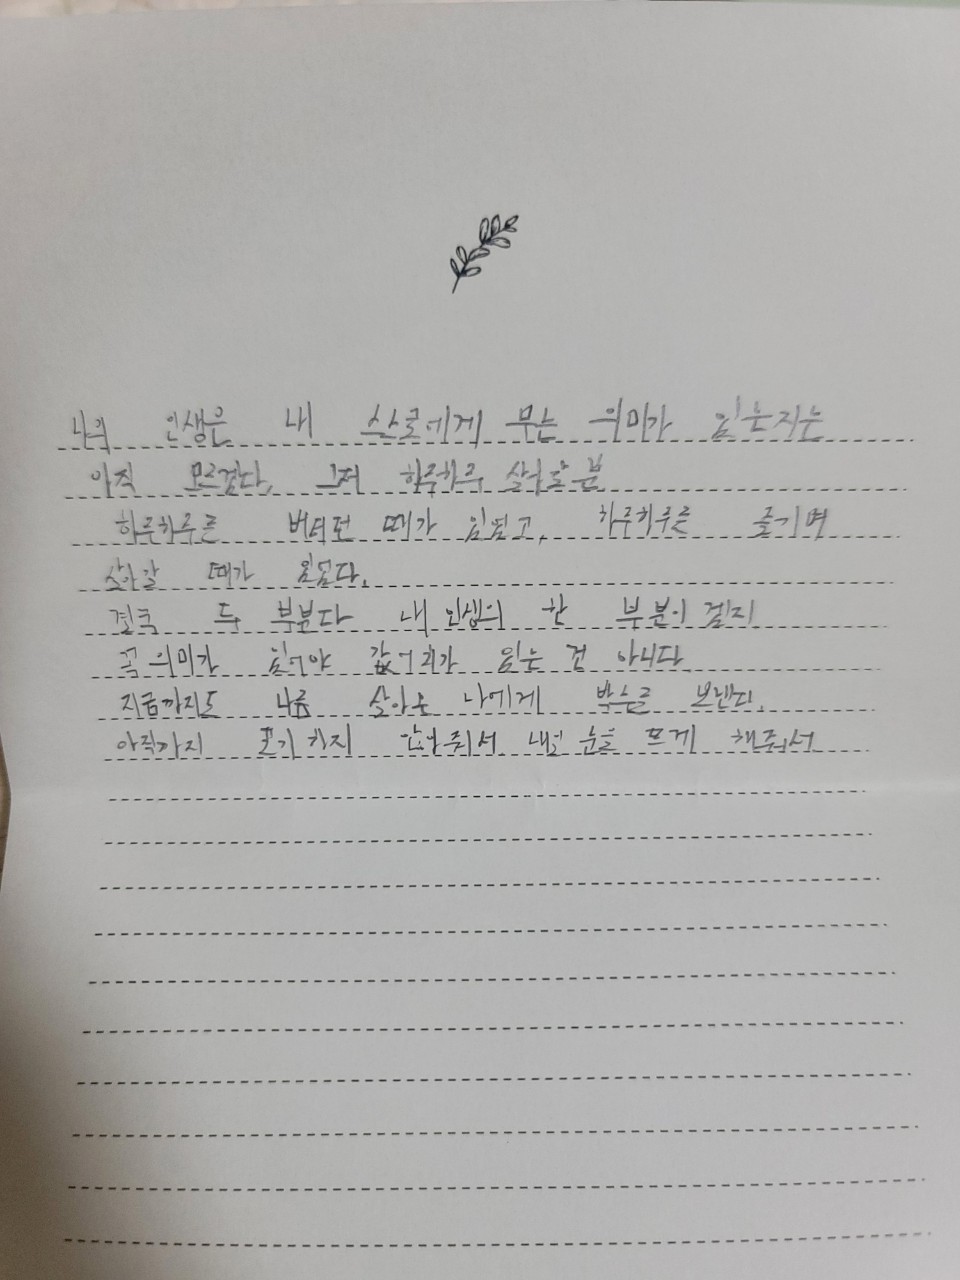 나의 인생은 내 스스로에게 무슨 의미가 있는지는
아직 모르겠다. 그저 하루하루 살아갈 뿐
하루하루를 버티던 때가 있었고, 하루하루를 즐기며
살아갈 때가 있었다.
결국 두 부분다 내 인생의 한 부분이 걸지
꼭 의미가 있어야 값어치가 있는 건 아니다
지금까지도 나름 살아온 나에게 박수를 보낸다.
아직까지 포기하지 않아줘서 내일 눈을 뜨게 해줘서